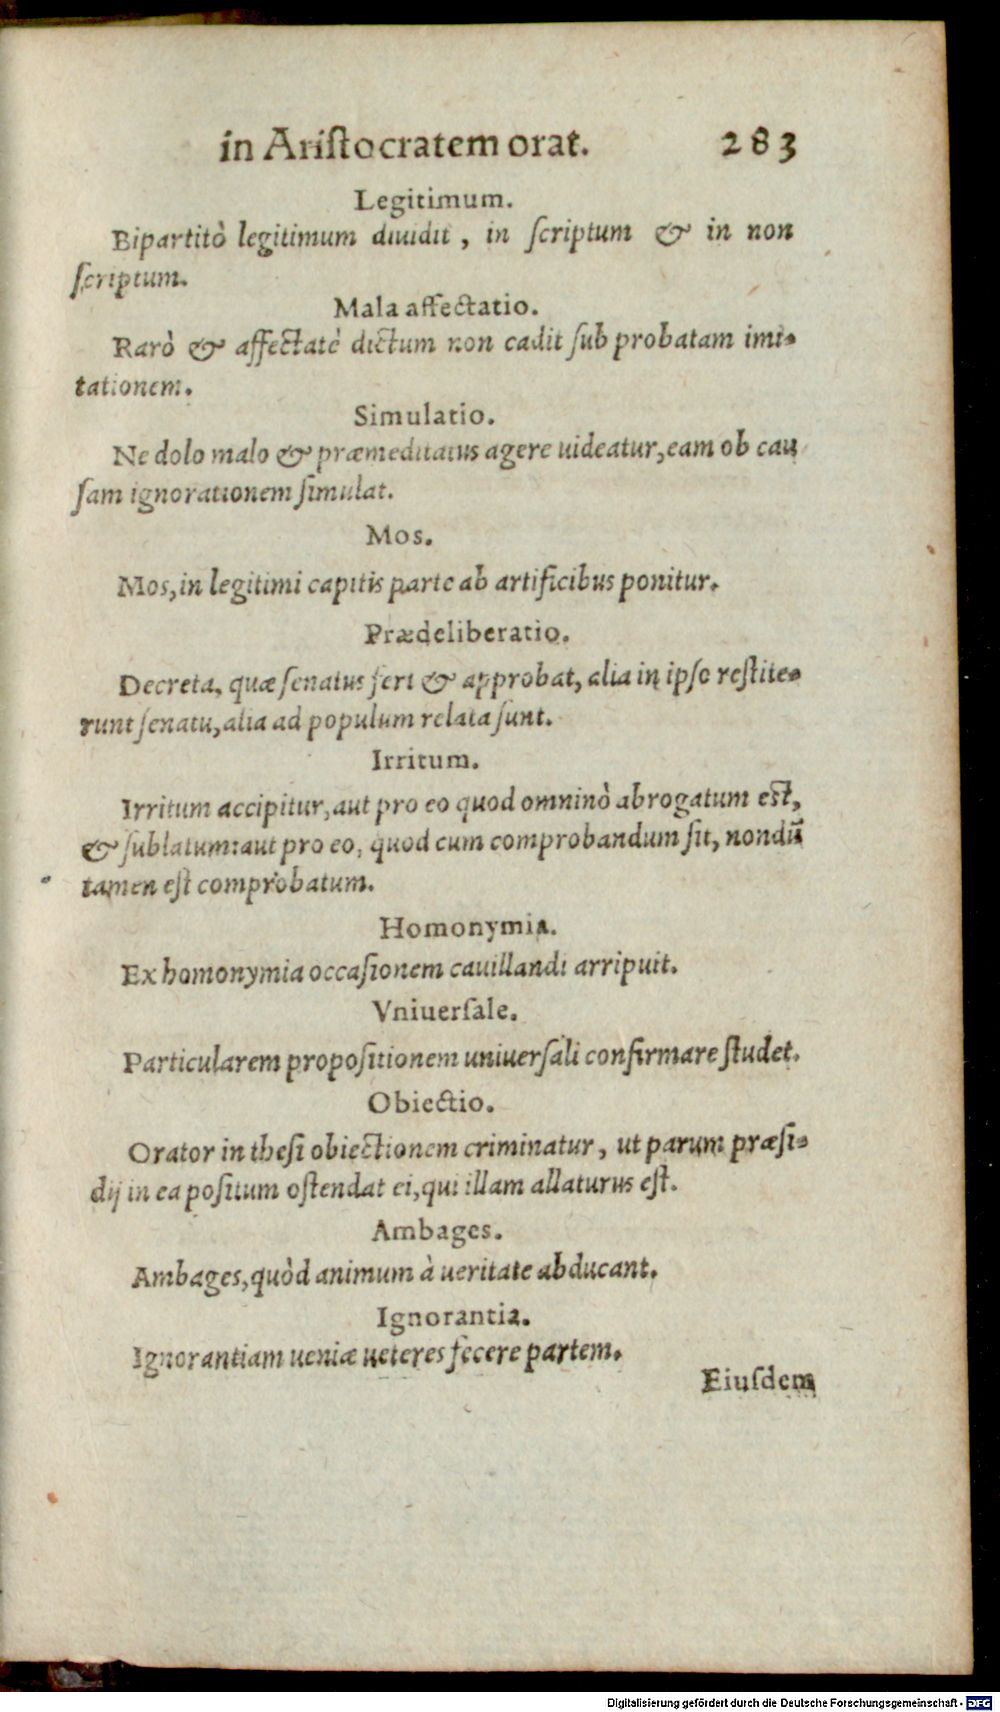 in Ariſtocratem orat. 283
Legitimum.
Bipartitò legitimum diuidit, in ſcriptum & in non
ſcriptum.
Mala affectatio.
Rarò & affectatè dictum non cadit ſub probatam imi-
tationem.
Simulatio.
Ne dolo malo & præmeditatus agere uideatur, eam ob cau
ſam ignorationem ſimulat.
Mos.
Mos, in legitimi capitis parte ab artificibus ponitur.
Prædeliberatio.
Decreta, quæ ſenatus fert & approbat, alia in ipſo reſtite-
runt ſenatu, alia ad populum relata ſunt.
Irritum.
Irritum accipitur, aut pro eo quod omninò abrogatum eſt,
& ſublatum: aut pro eo, quod cum comprobandum ſit, nondū
tamen eſt comprobatum.
Homonymia.
Ex homonymia occaſionem cauillandi arripuit.
Vniuerſale.
Particularem propoſitionem uniuerſali confirmare ſtudet.
Obiectio.
Orator in theſi obiectionem criminatur, ut parum præſi-
dij in ea poſitum oſtendat ei, qui illam allaturus eſt.
Ambages.
Ambages, quòd animum à ueritate abducant.
Ignorantia.
Ignorantiam ueniæ ueteres fecere partem.
Eiuſdem
Digitalisierung gefördert durch die Deutsche Forschungsgemeinschaft - DFG